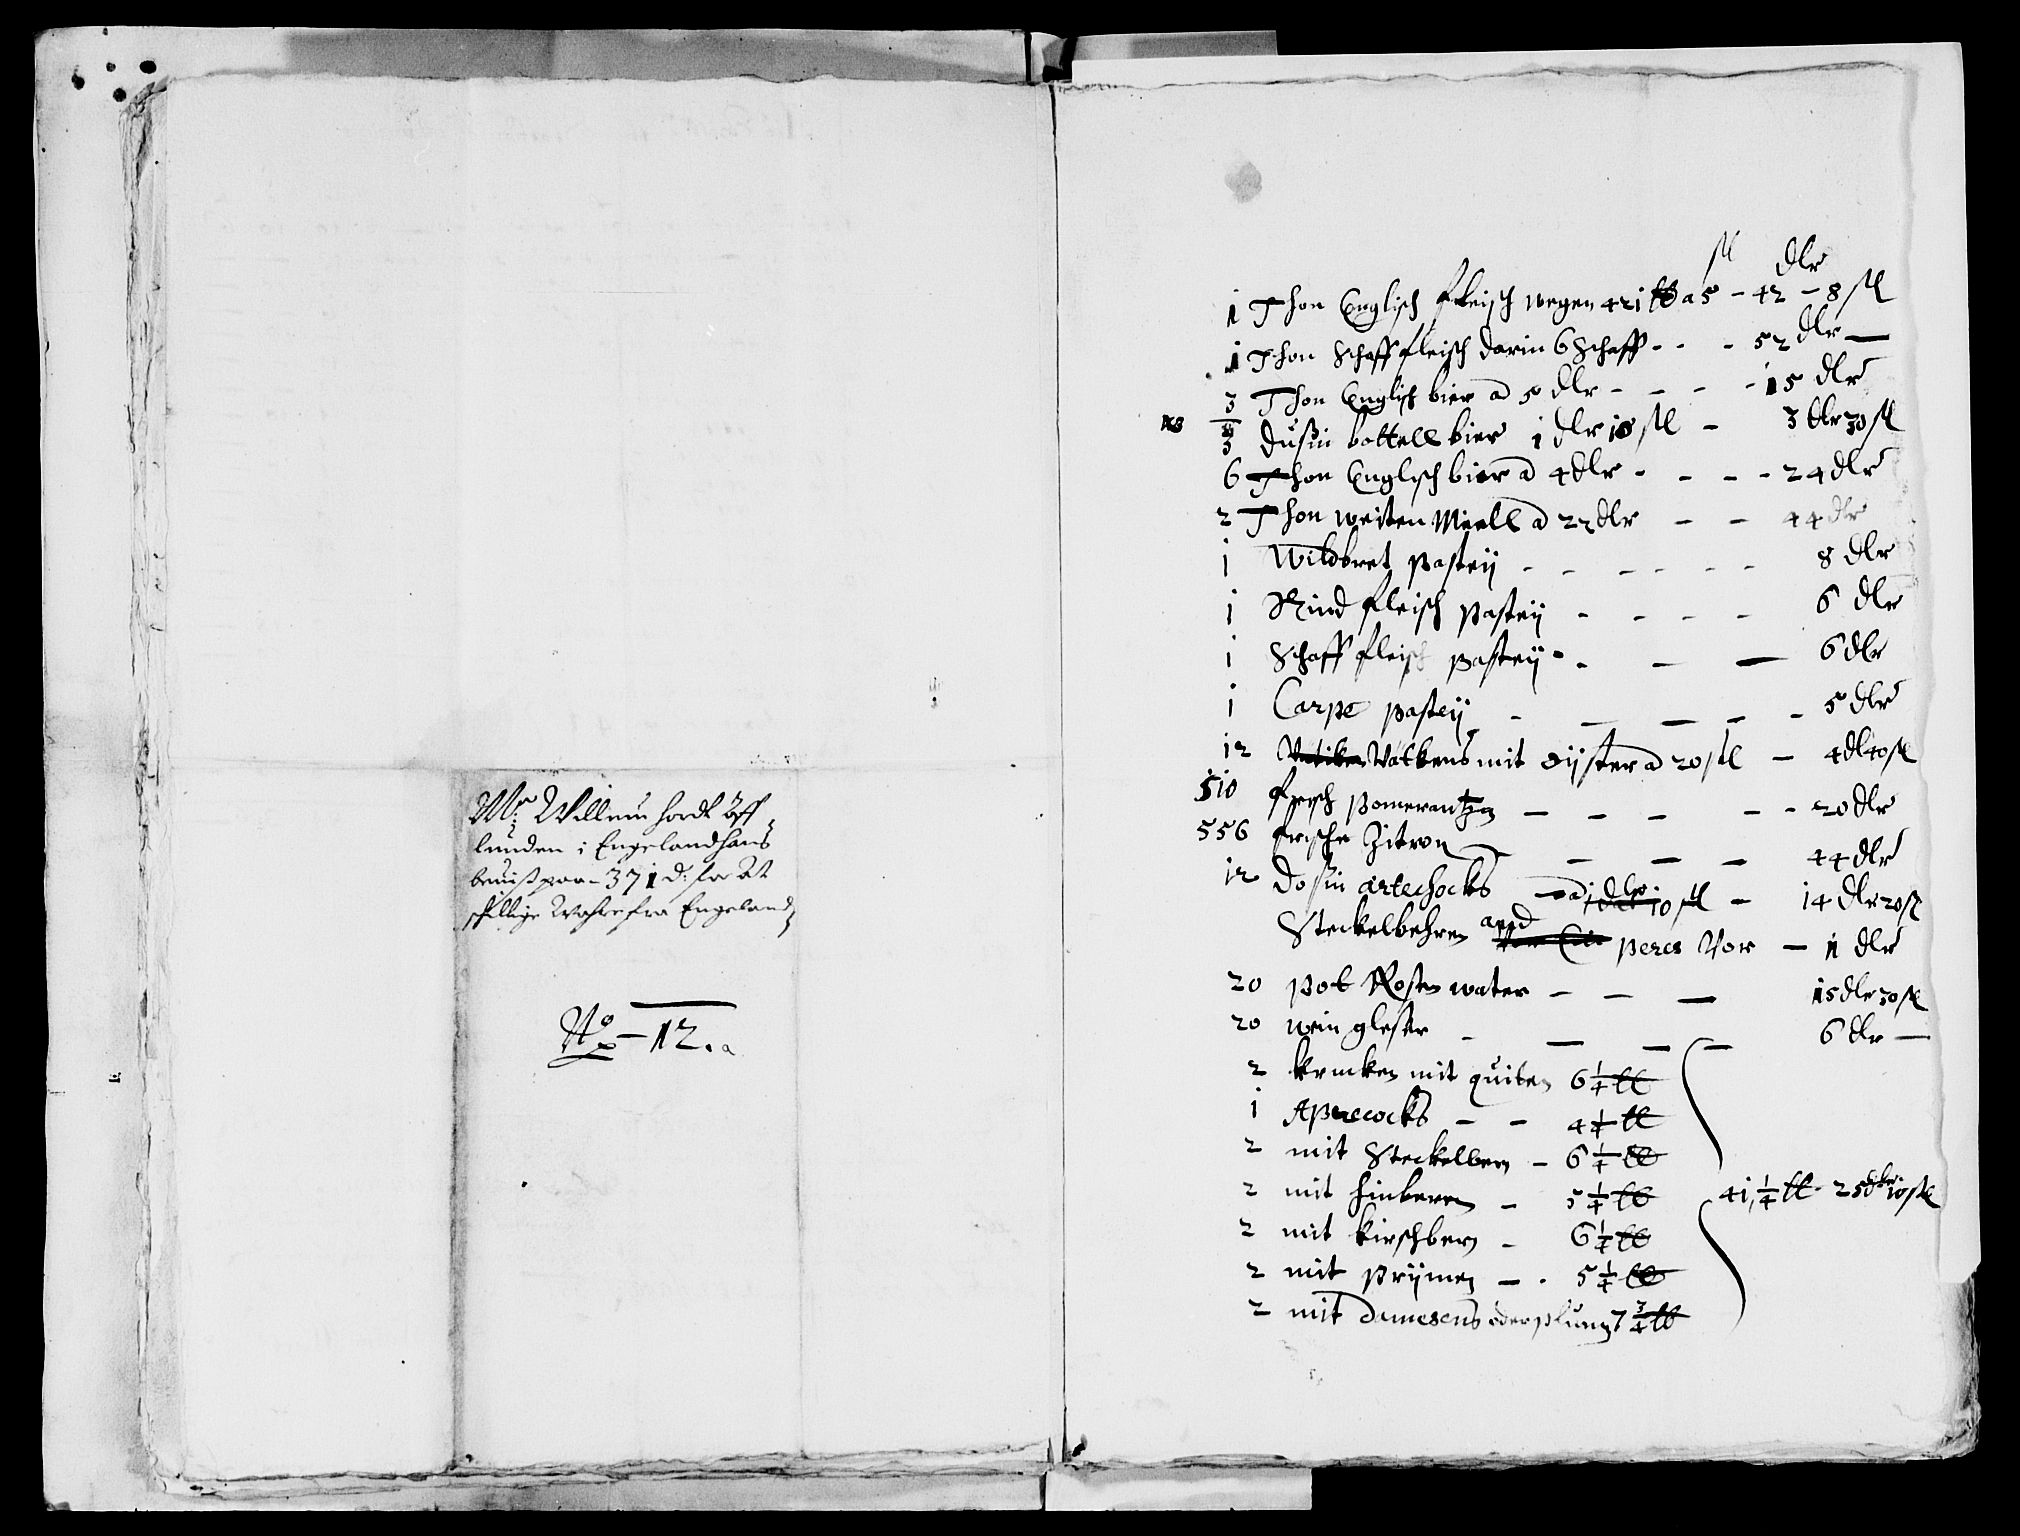 Mr: Willum hordt Öff
lunden i Engelandhans
beuiß paa 371 d: for Att
skillige Wahre fra Engeland
No 12. a
ßl dlr
1 Thon Englisch fleisch wegen 421 lb a 5 - 42 - 8 ßl
1 Thon Schaff fleisch darin 6 Schaff - - - 52 dlr
3 Thon Englisch bier a 5 dlr - - - - 15 dlr
3 dußin bottell bier 1 dlr 10 ßl - 3 dlr 30 ßl
6 Thon Englisch bier a 4 dlr - - - - 24 dlr
2 Thon weiten Meell a 22 dlr - - 44 dlr
1 Wildbret pasteij - - - - - - 8 dlr
1 Rind fleisch pasteij - - - - 6 dlr
1 Schaff fleisch pasteij - - - - 6 dlr
1 Carpe pasteij - - - - - 5 dlr
12 Vatkens mit oijster a 20 ßl - 4 dl 40 ßl
510 frisch pomerantzen - - - - - 20 dlr
556 frische Zitron - - - 44 dlr
12 doßin artechocks - a 1 dlr 10 ßl - 14 dlr 20 ßl
Steckelbehren and peres Vor - 1 dlr
20 pot Rosen water - - - 15 dlr 30 ßl
20 wein gleser - - - - 6 dlr -
2 krucken mit quiten 6 1/4 lb
1 Aprecocks - - 4 1/4 lb
2 mit Steckelberen - 6 1/4 lb
2 mit hinberen - 5 1/4 lb
41 1/4 lb - 25 dlr 10 ßl
2 mit kirschberen - 6 1/4 lb
2 mit prijmen - . 5 1/4 lb
2 mit damesens oder plumen 7 3/4 lb